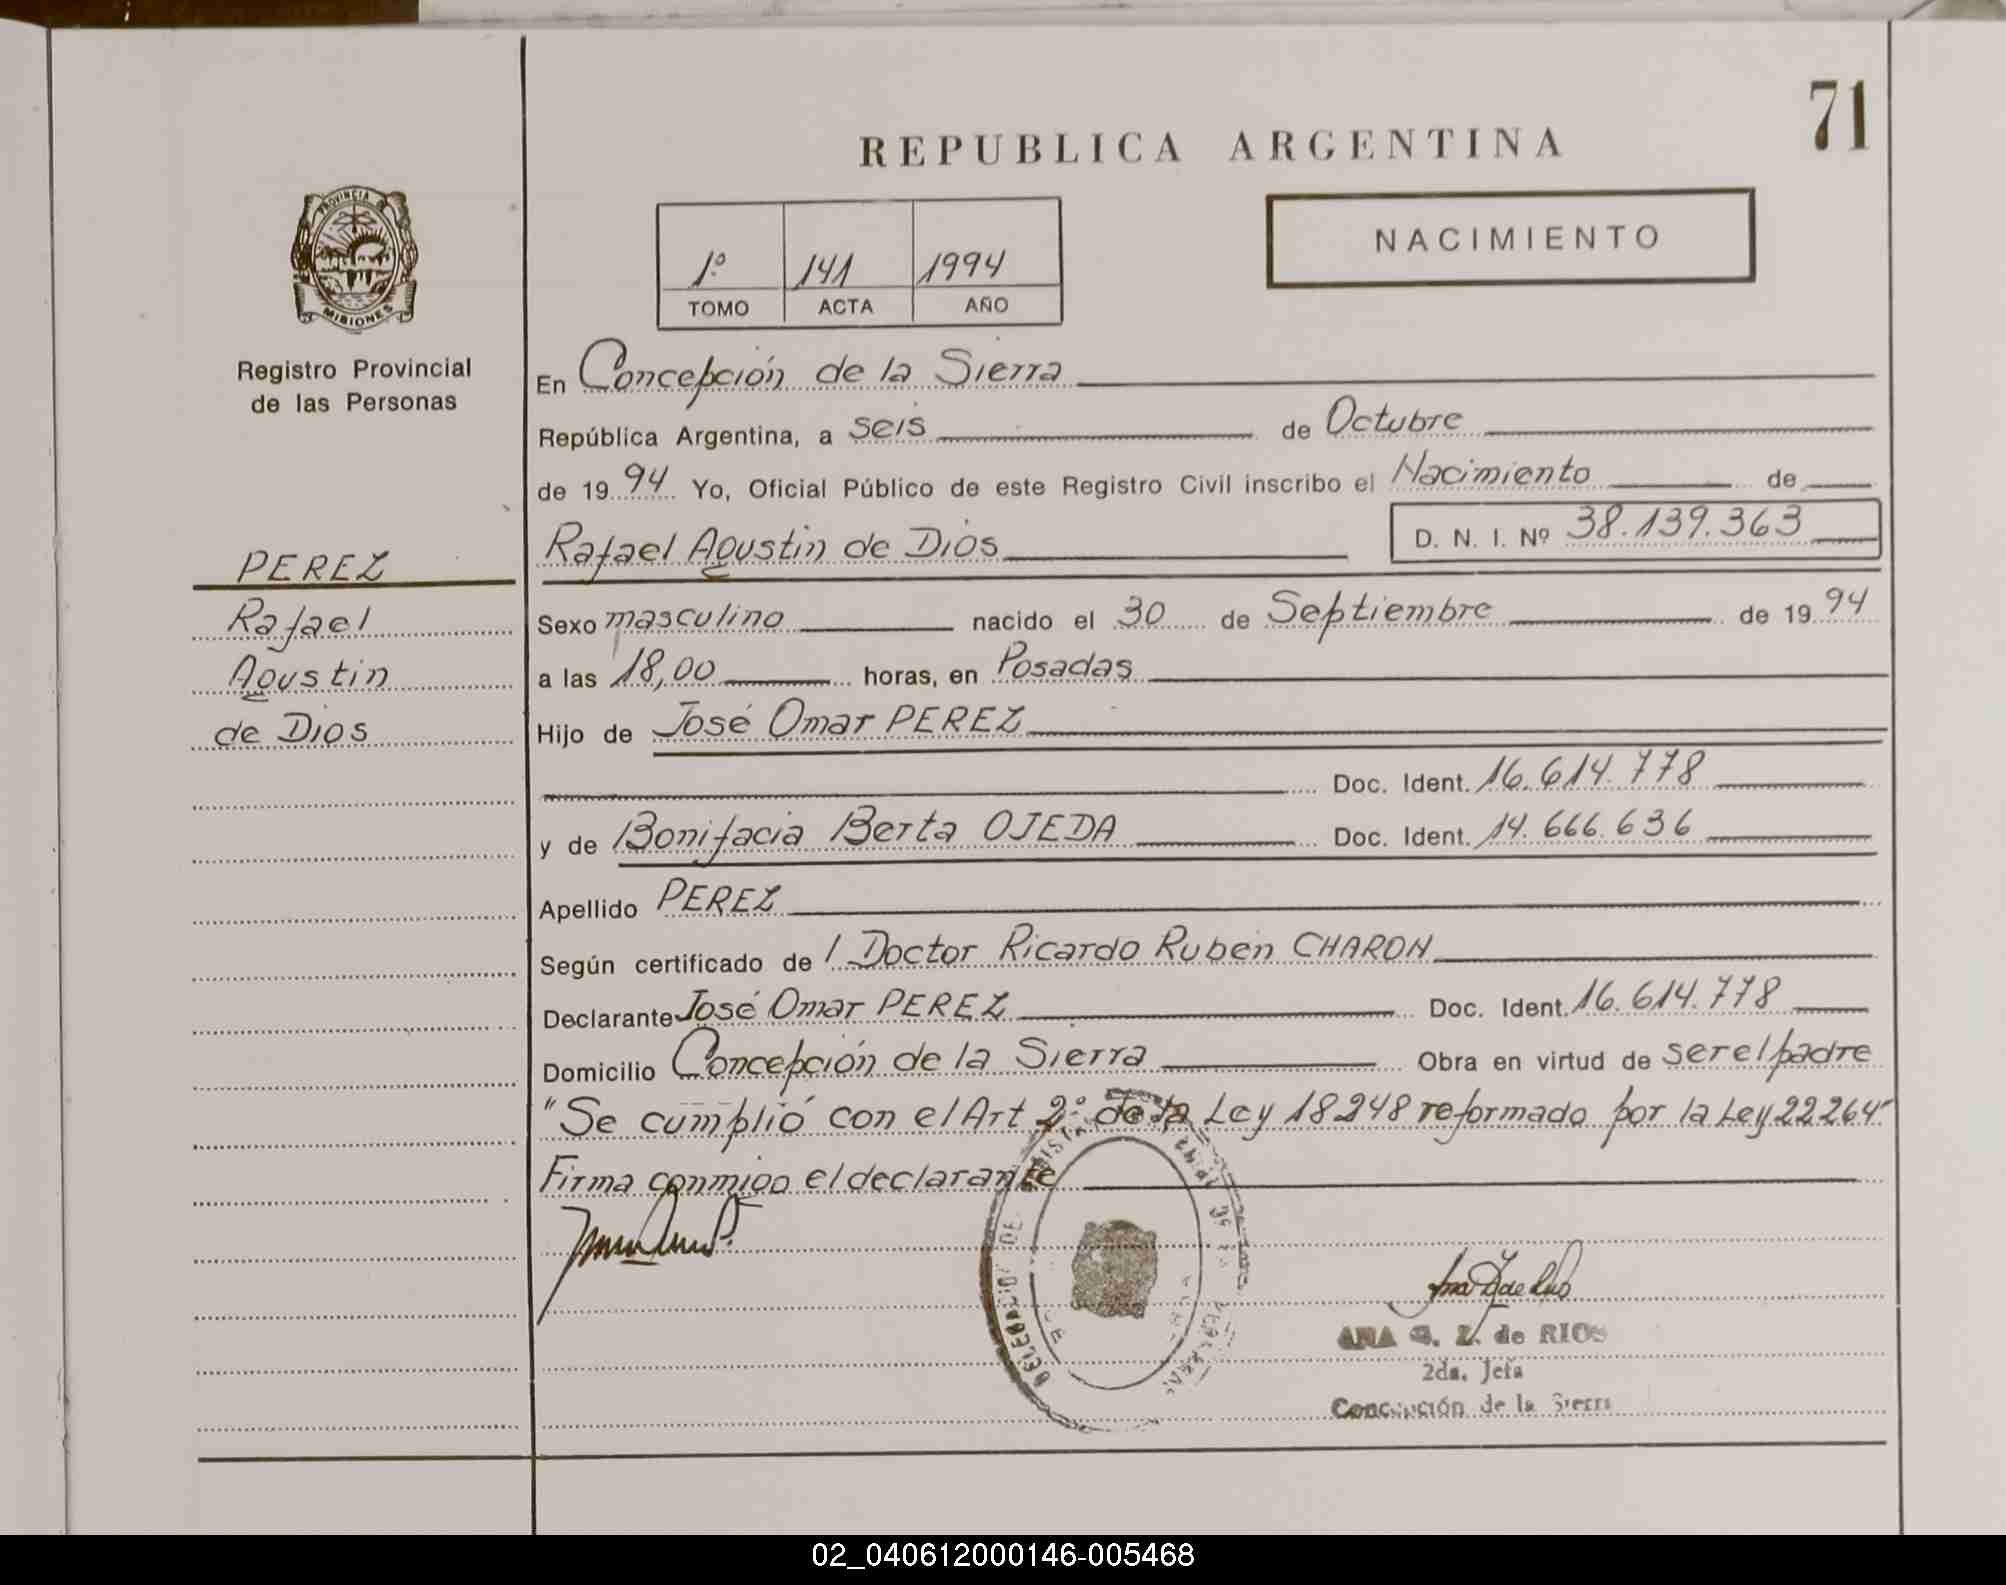 71
REPUBLICA ARGENTINA
PROVINCIA DE
MISIONES
Registro Provincial
de las Personas
NACIMIENTO
1º 141 1994
TOMO ACTA AÑO
En Concepción de la Sierra
República Argentina, a seis de Octubre
de 1994 Yo, Oficial Público de este Registro Civil inscribo el Nacimiento de
Rafael Agustin de Dios D. N. I. Nº 38.139.363
PEREZ
Rafael
Agustin
de Dios
Sexo masculino nacido el 30 de Septiembre de 1994
a las 18,00 horas, en Posadas
Hijo de José Omar PEREZ
Doc. Ident. 16.614.778
y de Bonifacia Berta OJEDA Doc. Ident. 14.666.636
Apellido PEREZ
Según certificado de l Doctor Ricardo Ruben CHARON
Declarante José Omar PEREZ Doc. Ident. 16.614.778
Domicilio Concepción de la Sierra Obra en virtud de ser el padre
"Se cumplió con el Art 2º de la Ley 18248 reformado por la Ley 22264"
Firma conmigo el declarante
ANA G. Z. de RIOS
2da. Jefa
Concepción de la Sierra
02_040612000146-005468